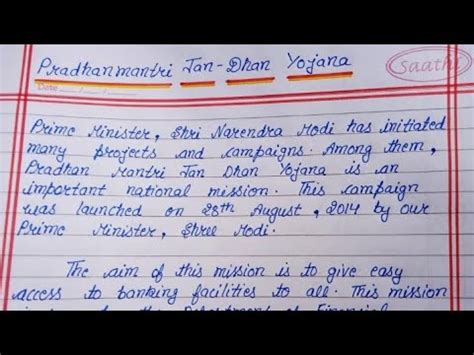 Pradhanmantri Jan-Dhan Yojana
Saathi
Date
Prime Minister, Shri Narendra Modi has initiated
many projects and campaigns. Among them,
Pradhan Mantri Jan Dhan Yojana is an
important national mission. This campaign
was launched on 28th August, 2014 by our
Prime Minister, Shree Modi.
The aim of this mission is to give easy
access to banking facilities to all. This mission